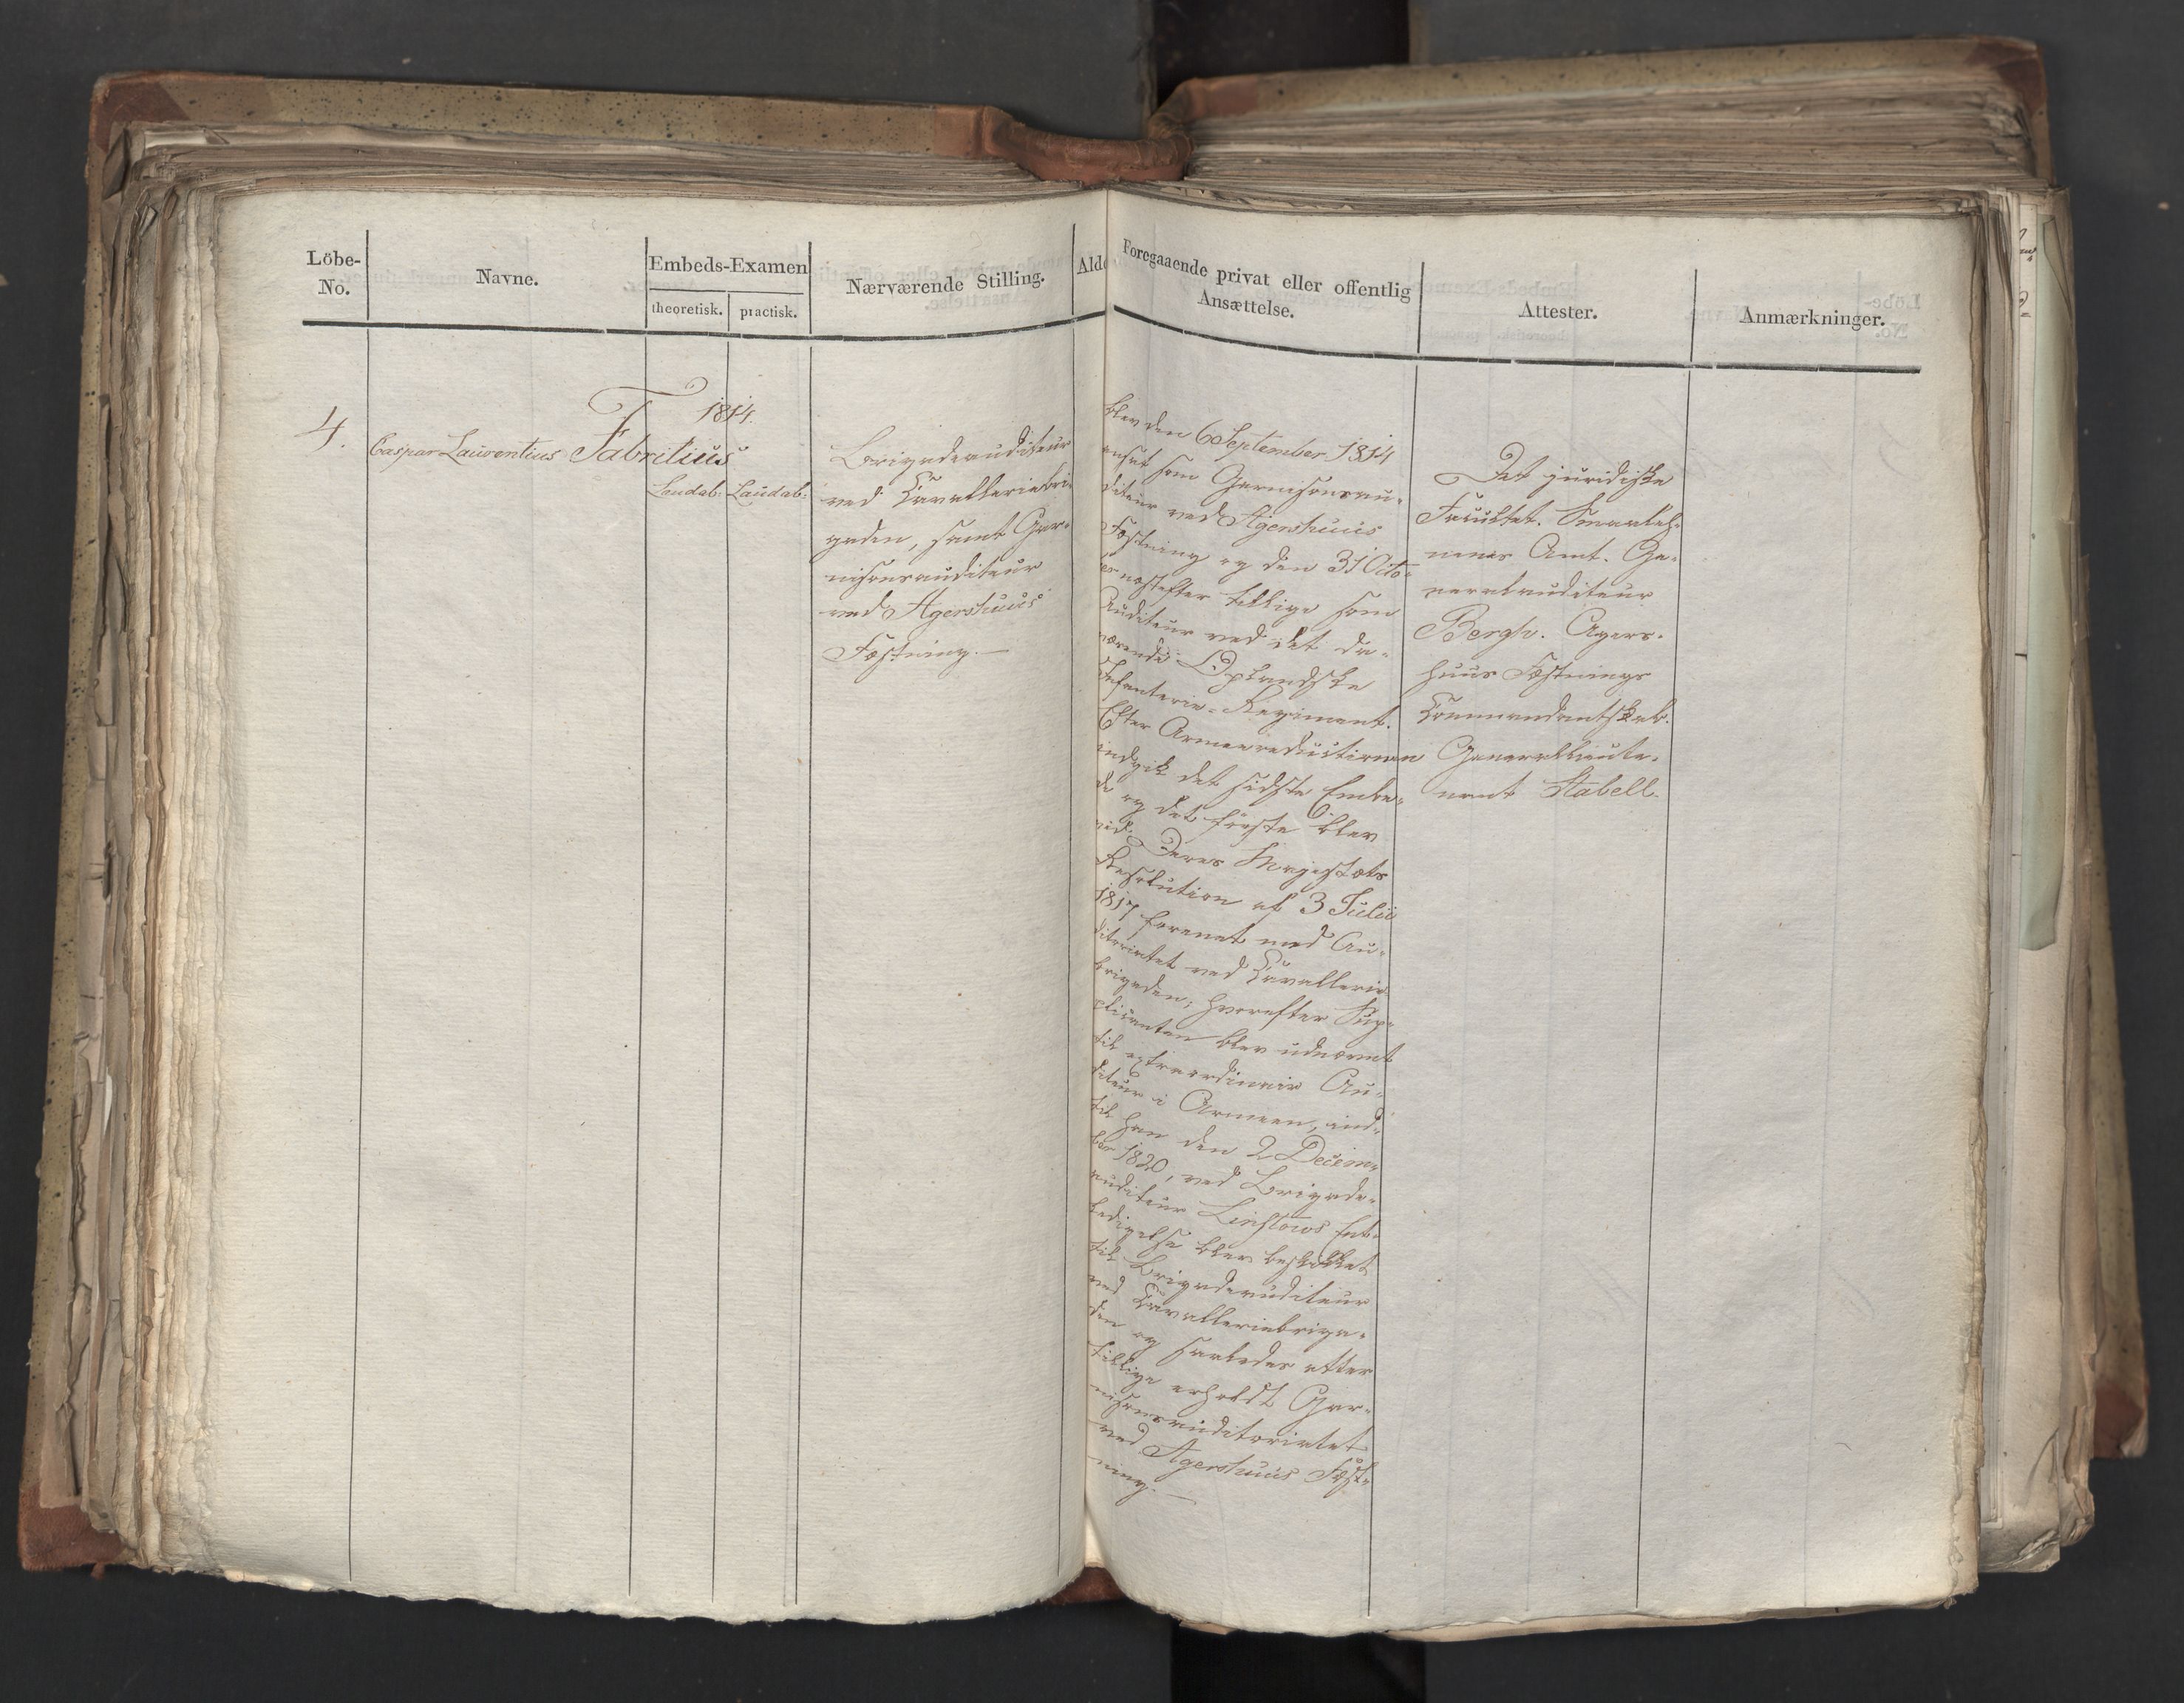 Löbe-
No.
Navne.
Embeds-Examen
theoretisk.
practisk.
Nærværende Stilling.
Alde
Foregaaende privat eller offentlig
Ansættelse.
Attester.
Anmærkninger.
4.
Caspar Lauventius Fabritius
1814.
Laudab:
Laudab:
Brigadeauditeur
ved Cavalleriebri-
gaden, samt Gar-
nisonsauditeur
ved Agershuus
Fæstning.—
blev den 6 September 1814
ansat som Garnisonsau-
diteur ved Agershuus
Fæstning og den 31 Octo-
ber næstefter tillige som
Auditeur ved det da-
værende Oplandske
Infanterie-Regiment.
Efter Armeereductionen
indgik det sidste Embe-
de og det første blev
ved Deres Majestæts
Resolution af 3 Julii
1817 forenet med Au-
ditoriatet ved Cavallerie
brigaden; hvorefter Sup-
plicanten blev udnævnt
til extraordinair Au-
diteur i Armeen, ind-
til han den 2 Decem-
ber 1820, ved Brigade-
auditeur Linstows Ent-
ledigelse blev beskikket
til Brigadeauditeur
ved Cavalleriebriga-
den og saaledes atter
tillige erholdt Gar-
nisonsauditoriatet
ved Agershuus Fæst-
ning.—
Det juridiske
Facultet. Smaaleh-
nenes Amt. Ge-
neralauditeur
Bergh. Agers-
huus Fæstnings
Commendantskab.
Generallieute-
nant Stabell.